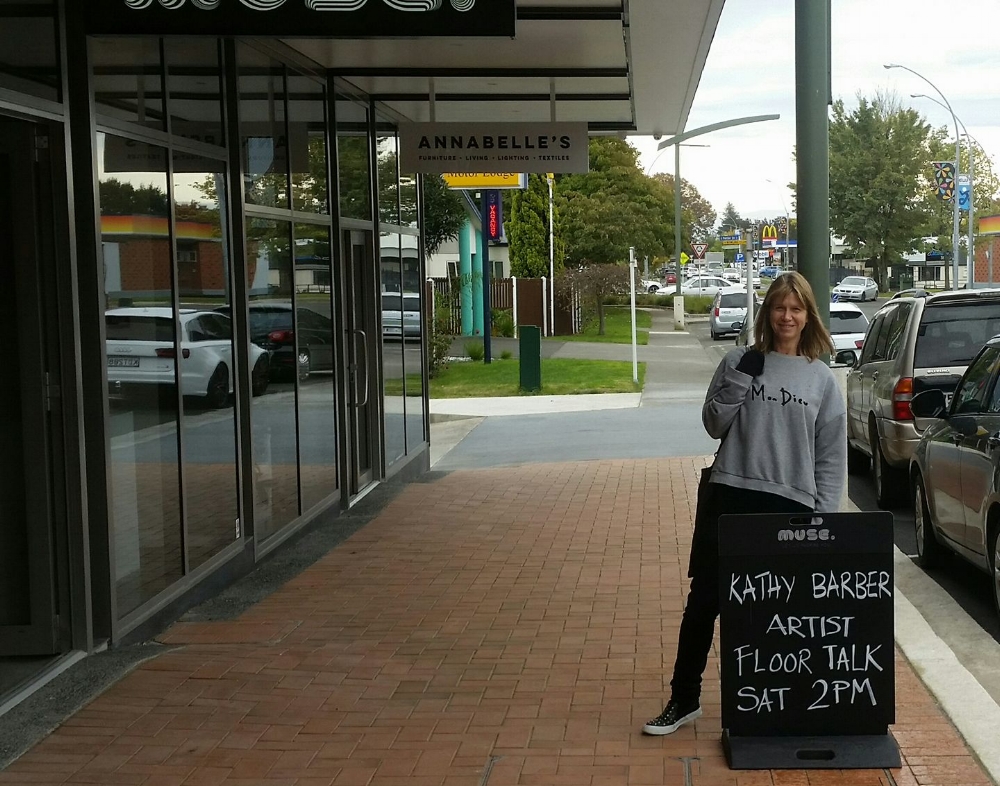 muse.
ANNABELLE'S
FURNITURE - LIVING - LIGHTING - TEXTILES
Motor Lodge
muse.
KATHY BARBER
ARTIST
FLOOR TALK
SAT 2PM